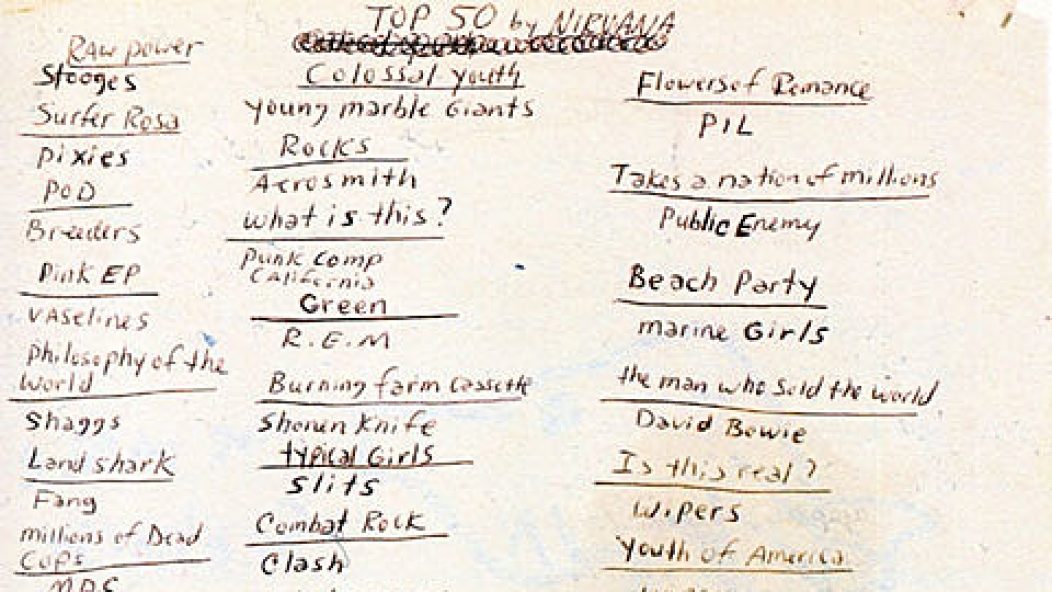 TOP 50 by NIRVANA
Raw power
Stooges
Surfer Rosa
pixies
POD
Breeders
Pink EP
vaselines
philosophy of the
world
Shaggs
Land shark
Fang
millions of Dead
Cops
MDC
Colossal youth
young marble Giants
Rocks
Aerosmith
what is this?
punk comp
California
Green
R.E.M
Burning farm cassette
Shonen Knife
typical Girls
Slits
Combat Rock
Clash
Flowers of Romance
PIL
Takes a nation of millions
Public Enemy
Beach Party
marine Girls
the man who sold the world
David Bowie
Is this real?
Wipers
Youth of America